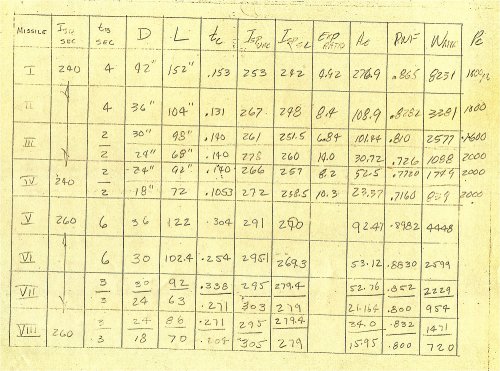 MISSILE ISP SEC tB SEC D L tc ISP VAC ISP SL EXP RATIO Ae PMF WMAX Pc
I 240 4 42" 152" .153 253 242 4.42 276.9 .865 8231
II 4 36" 104" .131 267 248 8.4 108.9 .8282 3281 1800
III 2 30" 98" .140 261 251.5 6.84 101.44 .810 2577 1600
2 24" 68" .140 278 260 14.0 30.72 .726 1088 2000
IV 240 2 24" 92" .140 266 257 8.2 56.5 .7720 1749 2000
2 18" 72 .1053 272 258.5 10.3 23.37 .7160 2000
V 260 6 36 122 .304 291 290 92.47 .8982 4448
VI 6 30 102.4 .254 295.1 269.3 53.12 .8830 2599
VII 3 30 92 .338 295 279.4 52.76 .852 2229
3 24 63 .271 303 279 21.164 .800 954
VIII 260 3 24 86 .271 295 279.4 34.0 .832 1471
.3 18 70 305 279 15.95 .800 720